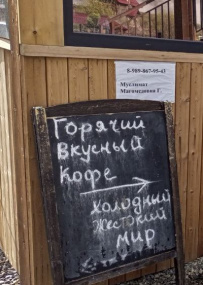 8-989-867-95-43
Муслимат
Магомедовна Г.
Горячий
Вкусный
Кофе
Холодный
Жестокий
мир